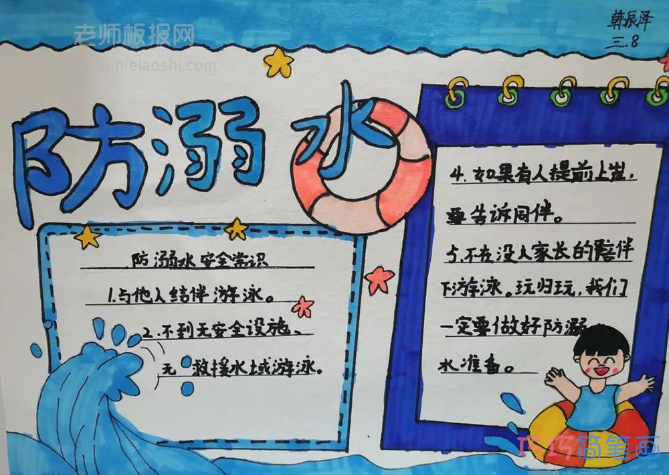 韩辰泽
三.8
老师板报网
www.nielaoshi.com
防溺水
防溺水安全常识
1.与他人结伴游泳。
2.不到无安全设施、
无 救援水域游泳。
4.如果有人提前上岸,
要告诉同伴。
5.不在没人家长的陪伴
下游泳。玩归玩,我们
一定要做好防溺
水准备。
巧巧简笔画